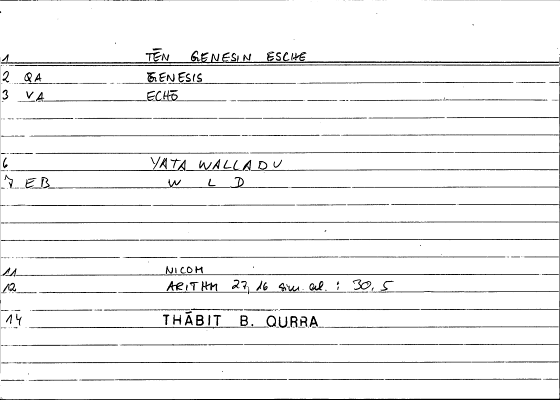 1 TĒN GENESIN ESCHE
2 QA GENESIS
3 VA ECHŌ
6 YATAWALLADU
7 EB W L D
11 NICOM
12 ARITHM 27, 16 sim. al. : 30, 5
14 THĀBIT B. QURRA